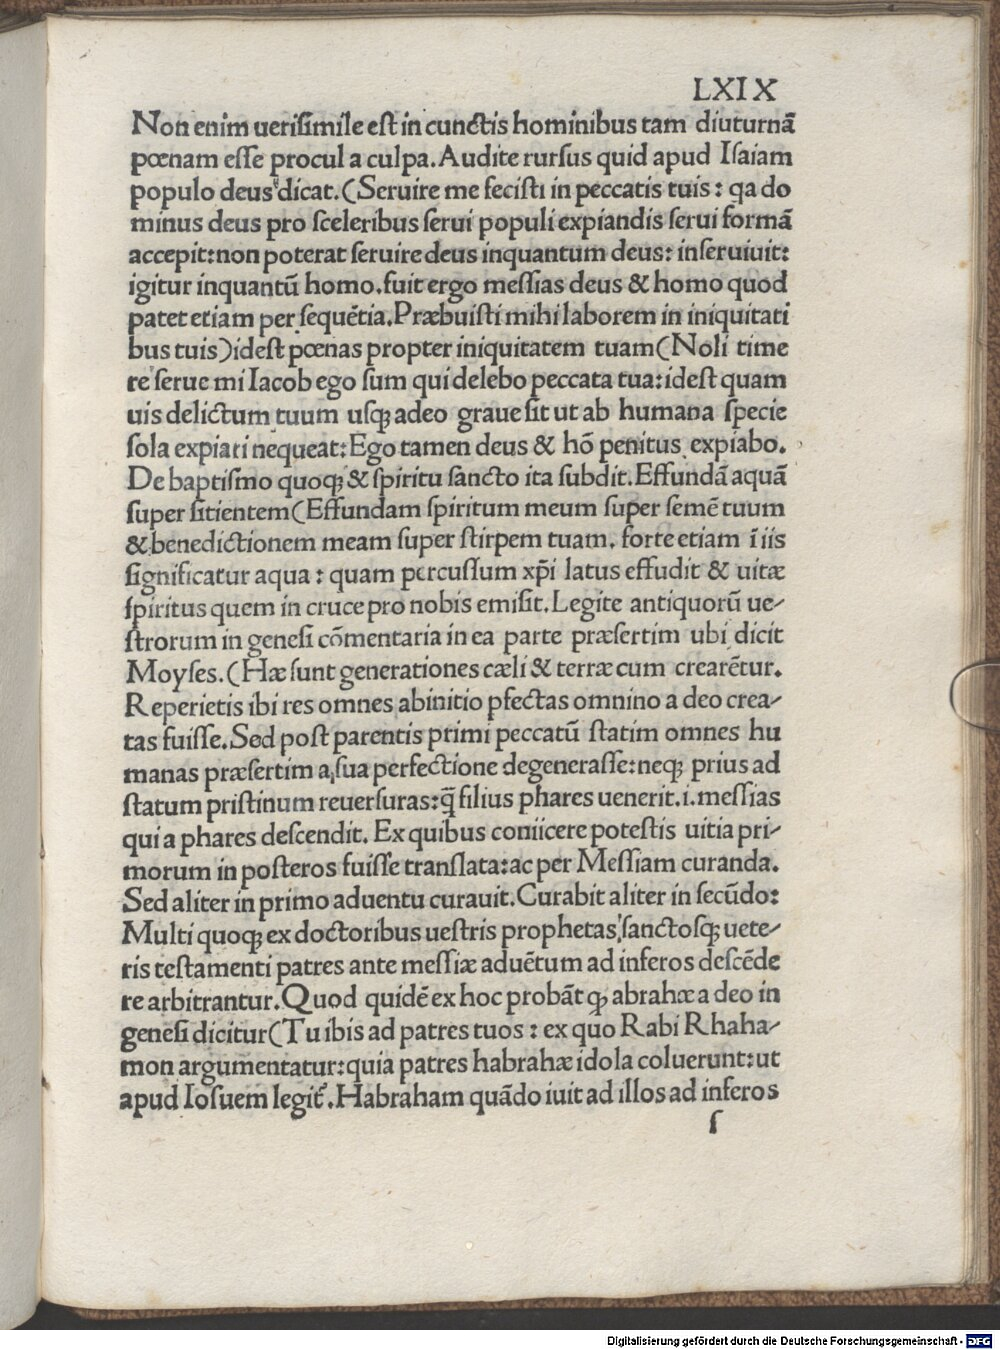 LXIX
Non enim uerisimile est in cunctis hominibus tam diuturnā
pœnam esse procul a culpa. Audite rursus quid apud Isaiam
populo deus dicat.(Seruire me fecisti in peccatis tuis: qa do
minus deus pro sceleribus serui populi expiandis serui formā
accepit:non poterat seruire deus inquantum deus: inseruiuit:
igitur inquantū homo.fuit ergo messias deus & homo quod
patet etiam per sequētia.Præbuisti mihi laborem in iniquitati
bus tuis)idest pœnas propter iniquitatem tuam(Noli time
re serue mi Iacob ego sum qui delebo peccata tua:idest quam
uis delictum tuum usqꝫ adeo graue sit ut ab humana specie
sola expiari nequeat:Ego tamen deus & hō penitus expiabo.
De baptismo quoqꝫ & spiritu sancto ita subdit.Effundā aquā
super sitientem(Effundam spiritum meum super semē tuum
& benedictionem meam super stirpem tuam. forte etiam ī iis
significatur aqua: quam percussum xp̄i latus effudit & uitæ
spiritus quem in cruce pro nobis emisit.Legite antiquorū ue-
strorum in genesi cōmentaria in ea parte præsertim ubi dicit
Moyses.(Hæ sunt generationes cæli & terræ cum crearētur.
Reperietis ibi res omnes abinitio pfectas omnino a deo crea-
tas fuisse.Sed post parentis primi peccatū statim omnes hu
manas præsertim a sua perfectione degenerasse:neqꝫ prius ad
statum pristinum reuersuras:q̄ filius phares uenerit.i.messias
qui a phares descendit. Ex quibus coniicere potestis uitia pri-
morum in posteros fuisse translata:ac per Messiam curanda.
Sed aliter in primo aduentu curauit.Curabit aliter in secūdo:
Multi quoqꝫ ex doctoribus uestris prophetas sanctosqꝫ uete-
ris testamenti patres ante messiæ aduētum ad inferos descēde
re arbitrantur.Quod quidē ex hoc probāt qꝫ abrahæ a deo in
genesi dicitur(Tu ibis ad patres tuos: ex quo Rabi Rhaha-
mon argumentatur:quia patres habrahæ idola coluerunt:ut
apud Iosuem legit᷑.Habraham quādo iuit ad illos ad inferos
ſ
Digitalisierung gefördert durch die Deutsche Forschungsgemeinschaft - DFG